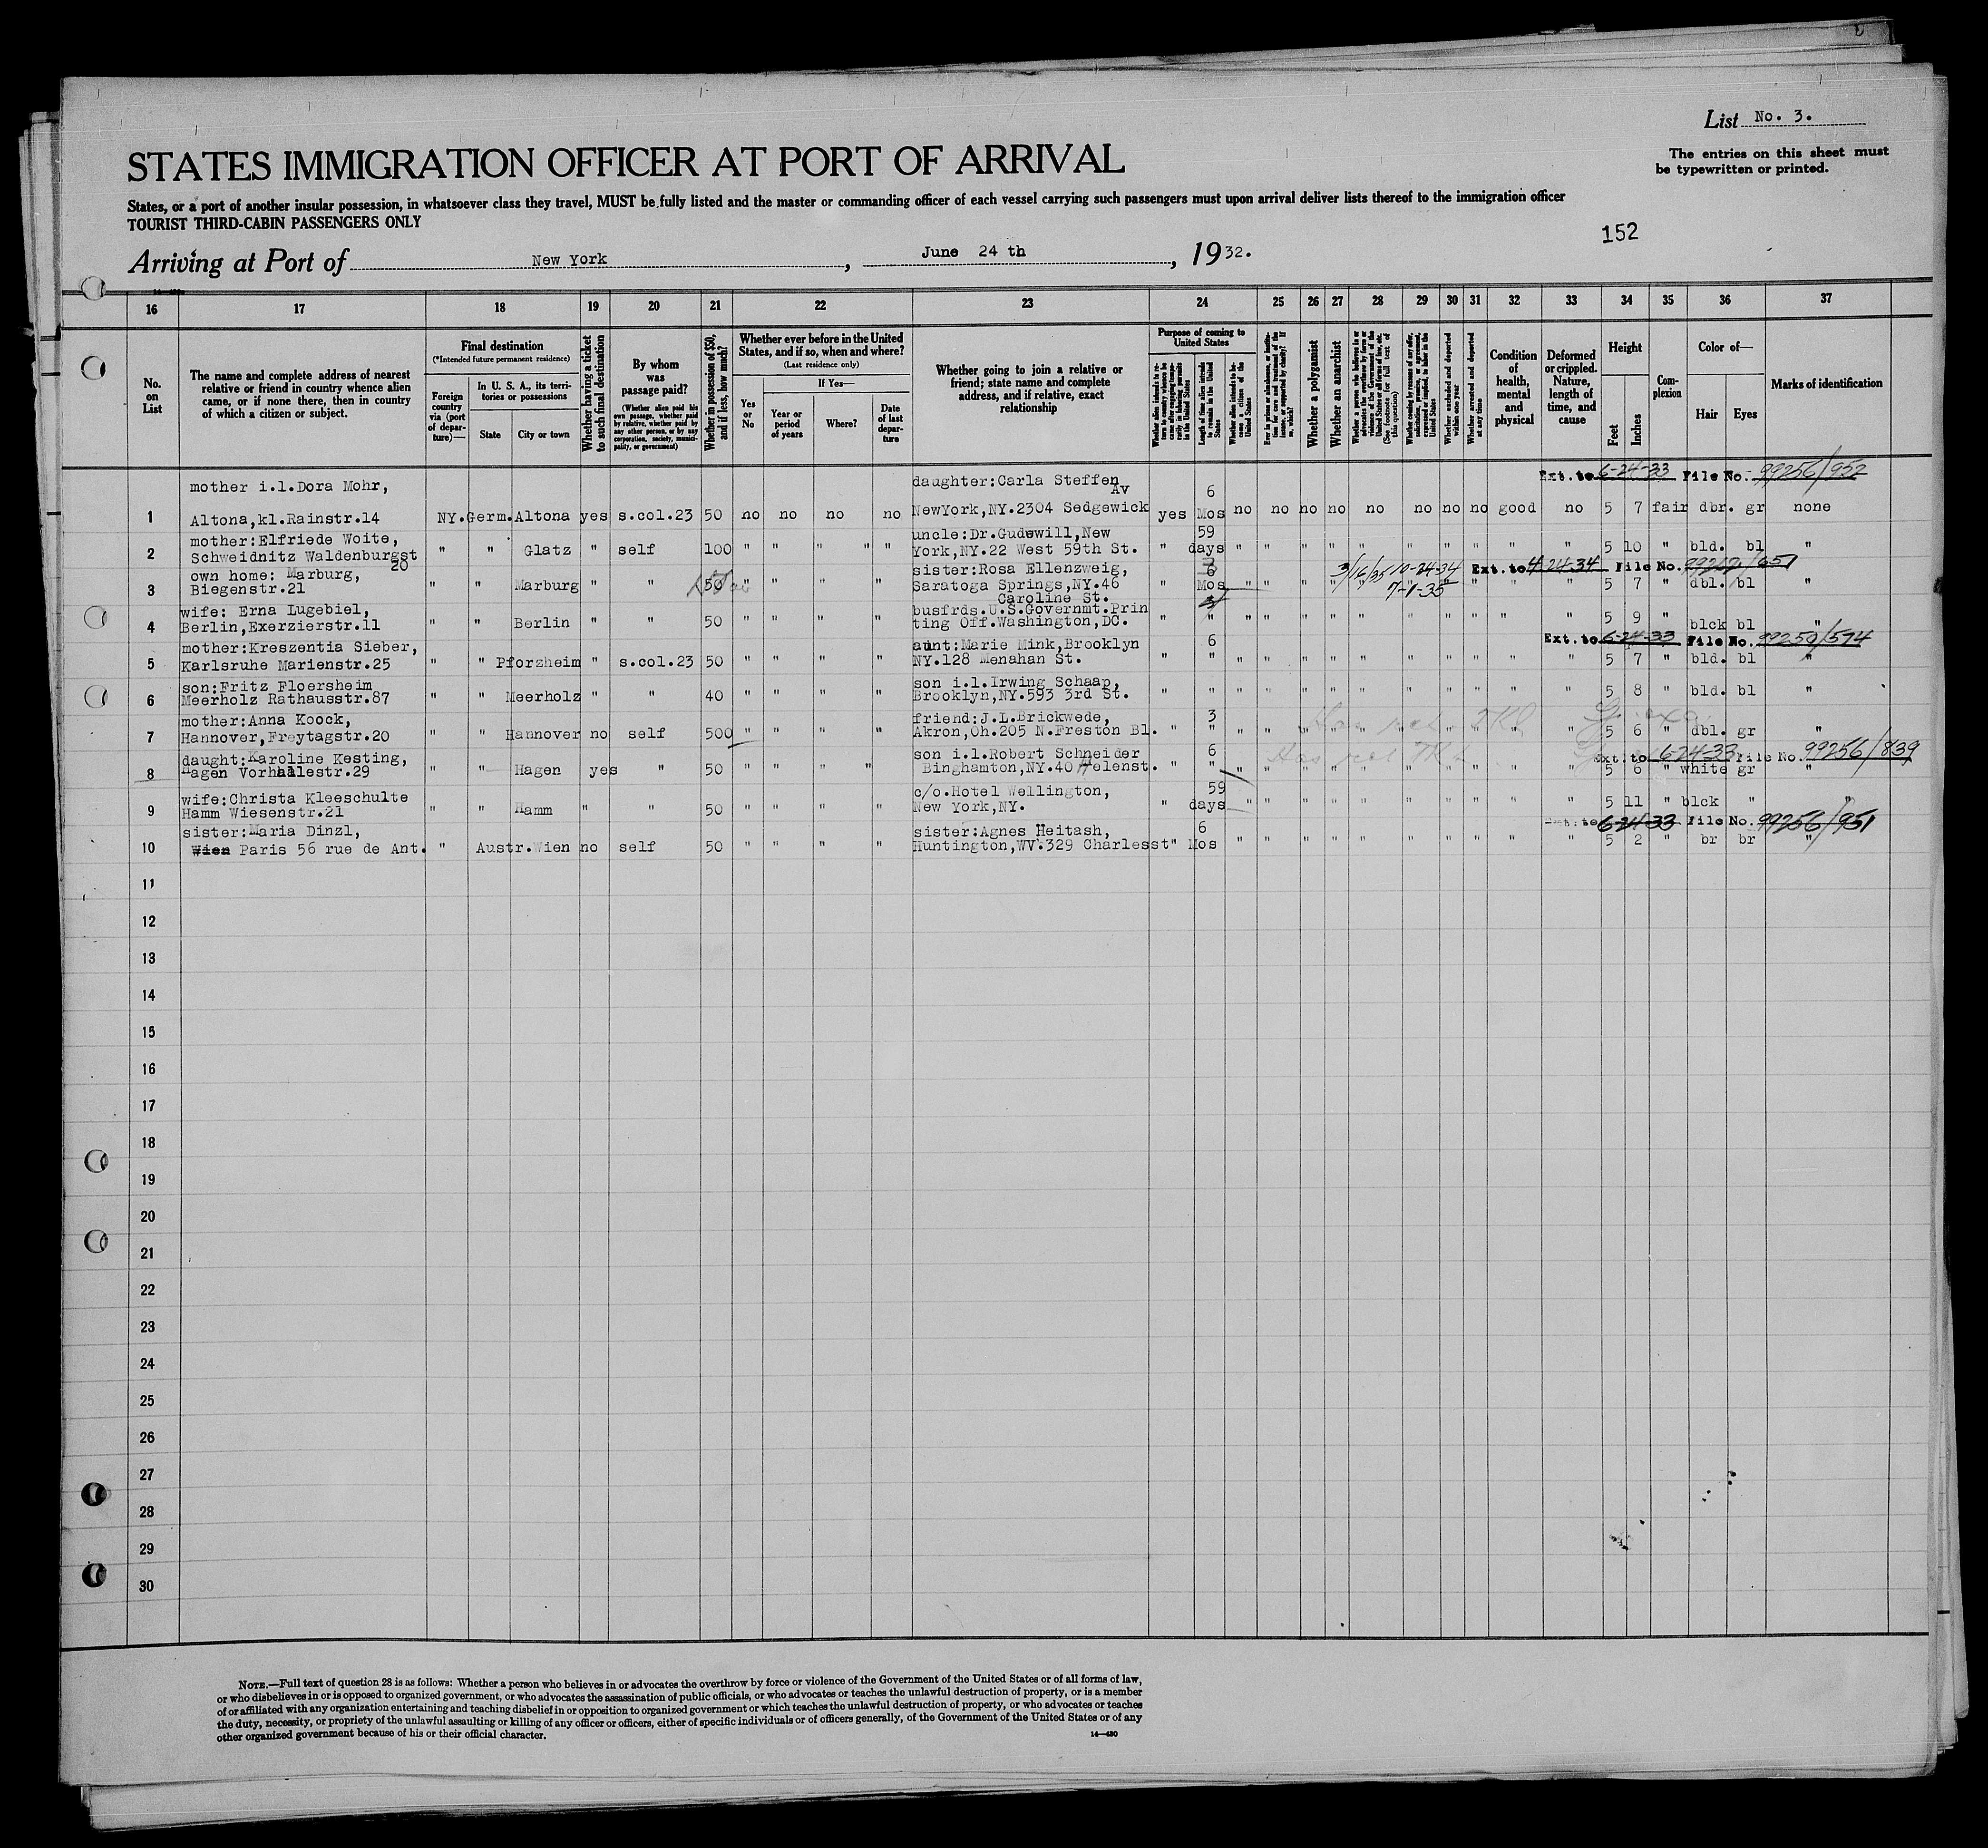 List No. 3.
STATES IMMIGRATION OFFICER AT PORT OF ARRIVAL
The entries on this sheet must
be typewritten or printed.
States, or a port of another insular possession, in whatsoever class they travel, MUST be fully listed and the master or commanding officer of each vessel carrying such passengers must upon arrival deliver lists thereof to the immigration officer
TOURIST THIRD-CABIN PASSENGERS ONLY
152
Arriving at Port of New York, June 24 th, 1932.
16 17 18 19 20 21 22 23 24 25 26 27 28 29 30 31 32 33 34 35 36 37
No. on List
The name and complete address of nearest relative or friend in country whence alien came, or if none there, then in country of which a citizen or subject.
Final destination
(*Intended future permanent residence)
Foreign country via (port of departure)—
In U. S. A., its territories or possessions
State
City or town
Whether having a ticket to such final destination
By whom was passage paid?
(Whether alien paid his own passage, whether paid by relative, whether paid by any other person, or by any corporation, society, municipality, or government)
Whether in possession of $50, and if less, how much?
Whether ever before in the United States, and if so, when and where?
(Last residence only)
Yes or No
If Yes—
Year or period of years
Where?
Date of last departure
Whether going to join a relative or friend; state name and complete address, and if relative, exact relationship
Purpose of coming to United States
Whether alien intends to return to country whence he came after engaging temporarily in laboring pursuits in the United States
Length of time alien intends to remain in the United States
Whether alien intends to become a citizen of the United States
Ever in prison or almshouse, or institution for care and treatment of the insane, or supported by charity? If so, which?
Whether a polygamist
Whether an anarchist
Whether a person who believes in or advocates the overthrow by force or violence of the Government of the United States or all forms of law, etc. (See footnote for full text of this question)
Whether coming by reason of any offer, solicitation, promise, or agreement, expressed or implied, to labor in the United States
Whether excluded and deported within one year
Whether arrested and deported at any time
Condition of health, mental and physical
Deformed or crippled. Nature, length of time, and cause
Height
Feet
Inches
Complexion
Color of—
Hair
Eyes
Marks of identification
Ext. to 6-24-33 File No. 99256/952
mother i.l.Dora Mohr, daughter:Carla Steffen
Av 6
1 Altona,kl.Rainstr.14 NY. Germ. Altona yes s.col.23 50 no no no no NewYork,NY.2304 Sedgewick yes Mos no no no no no no no no good no 5 7 fair dbr. gr none
mother:Elfriede Woite, uncle:Dr.Gudewill,New 59
2 Schweidnitz Waldenburgst " " Glatz " self 100 " " " " York,NY.22 West 59th St. " days " " " " " " " " " " 5 10 " bld. bl "
20
own home: Marburg, sister:Rosa Ellenzweig, 6 3/16/35 10-24-34 Ext. to 4-24-34 File No.
3 Biegenstr.21 " " Marburg " " 50 " " " " Saratoga Springs,NY.46 " Mos " " " " " 7-1-35 " " " " 5 7 " dbl. bl "
Caroline St.
wife: Erna Lugebiel, busfrds.U.S.Governmt.Prin
4 Berlin,Exerzierstr.11 " " Berlin " " 50 " " " " ting Off.Washington,DC. " " " " " " " " " " " " 5 9 " blck bl "
mother:Kreszentia Sieber, aunt:Marie Mink,Brooklyn 6 Ext. to 6-24-33 File No. 99250/574
5 Karlsruhe Marienstr.25 " " Pforzheim " s.col.23 50 " " " " NY.128 Menahan St. " " " " " " " " " " " " 5 7 " bld. bl "
son:Fritz Floersheim son i.l.Irwing Schaap,
6 Meerholz Rathausstr.87 " " Meerholz " " 40 " " " " Brooklyn,NY.593 3rd St. " " " " " " " " " " " " 5 8 " bld. bl "
mother:Anna Koock, friend:J.L.Brickwede, 3
7 Hannover,Freytagstr.20 " " Hannover no self 500 " " " " Akron,Oh.205 N.Freston Bl. " " " " " " " " " " " " 5 6 " dbl. gr "
daught:Karoline Kesting, son i.l.Robert Schneider 6 Ext. to 6-24-33 File No. 99256/839
8 Hagen Vorhallestr.29 " " Hagen yes " 50 " " " " Binghamton,NY.40 Helenst. " " " " " " " " " " " " 5 6 " white gr "
wife:Christa Kleeschulte c/o.Hotel Wellington, 59
9 Hamm Wiesenstr.21 " " Hamm " " 50 " " " " New York,NY. " days " " " " " " " " " " 5 11 " blck " "
sister:Maria Dinzl, sister:Agnes Heitash, 6 Ext. to 6-24-33 File No. 99256/951
10 Wien Paris 56 rue de Ant. " Austr. Wien no self 50 " " " " Huntington,WV.329 Charlesst " Mos " " " " " " " " " " 5 2 " br br "
11
12
13
14
15
16
17
18
19
20
21
22
23
24
25
26
27
28
29
30
NOTE.—Full text of question 28 is as follows: Whether a person who believes in or advocates the overthrow by force or violence of the Government of the United States or of all forms of law,
or who disbelieves in or is opposed to organized government, or who advocates the assassination of public officials, or who advocates or teaches the unlawful destruction of property, or is a member
of or affiliated with any organization entertaining and teaching disbelief in or opposition to organized government or which teaches the unlawful destruction of property, or who advocates or teaches
the duty, necessity, or propriety of the unlawful assaulting or killing of any officer or officers, either of specific individuals or of officers generally, of the Government of the United States or of any
other organized government because of his or their official character.
14—430